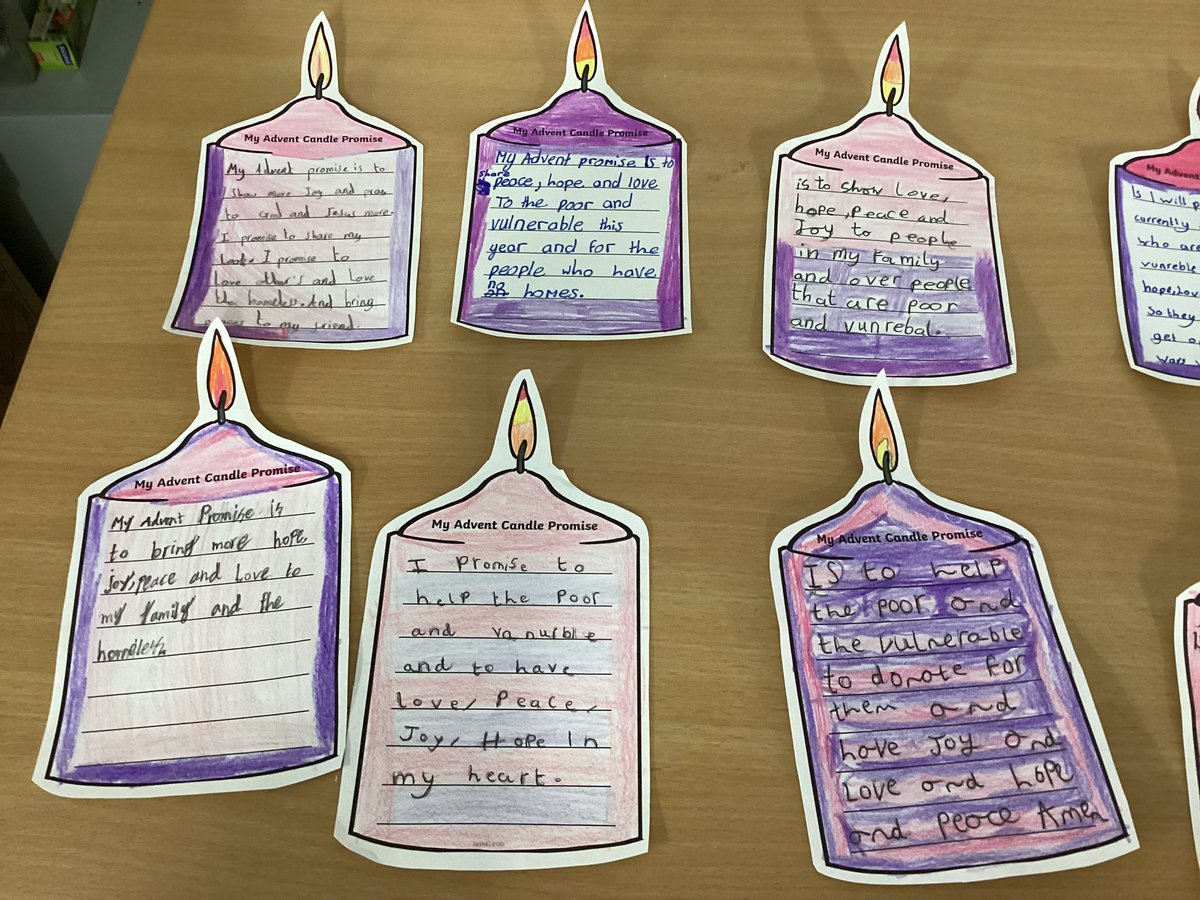 My Advent Candle Promise
My Advent promise is to
show more Joy and pray
to God and Jesus more.
I promise to share my
I promise to
love other's and love
the homeless. And bring
to my friend.
My Advent Candle Promise
My Advent promise is to
share
peace, hope and love
To the poor and
vulnerable this
year and for the
people who have
no homes.
My Advent Candle Promise
is to show love,
hope, peace and
Joy to people
in my family
and over people
that are poor
and vunrebal.
My Advent
Is I will p
currently
who are
vunreble
hope, Lov
So they
get o
wars
My Advent Candle Promise
My Advent Promise is
to bring more hope,
joy, peace and Love to
my family and the
homeless.
My Advent Candle Promise
I Promise to
help the Poor
and vanurble
and to have
Love, Peace,
Joy, Hope In
my heart.
My Advent Candle Promise
IS to help
the poor and
the vulnerable
to donate for
them and
have Joy and
Love and hope
and peace Amen